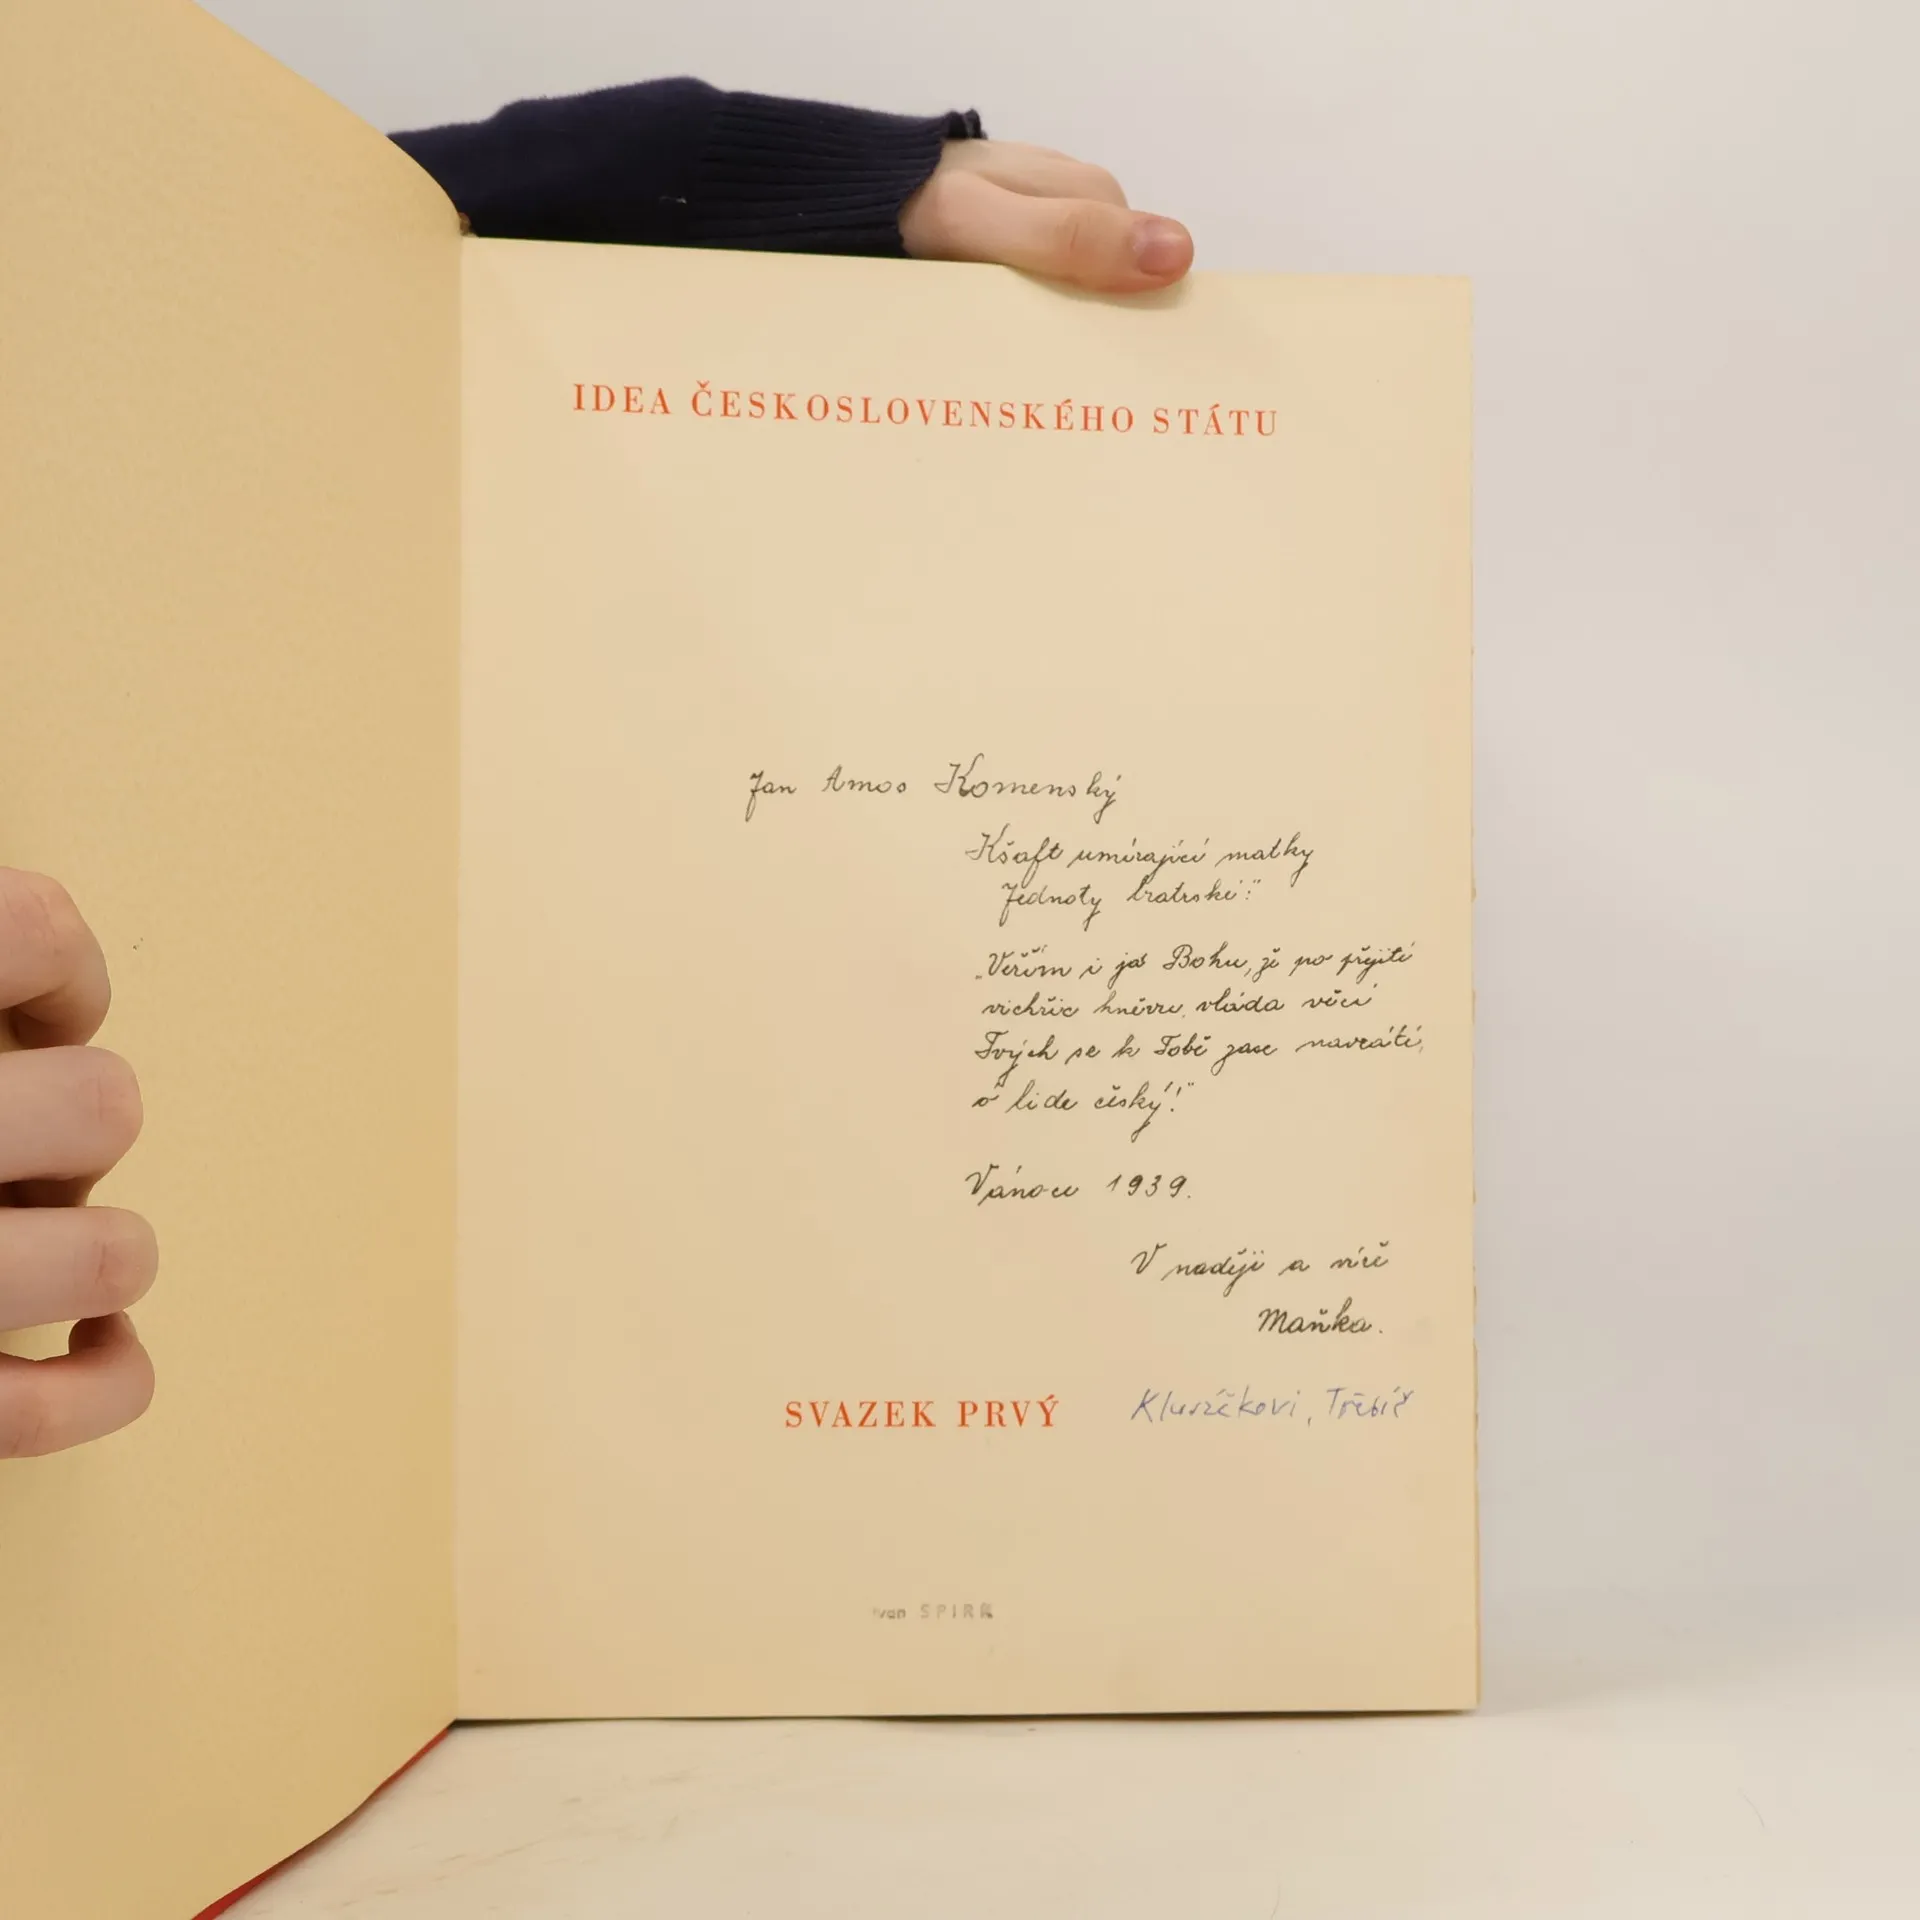 IDEA ČESKOSLOVENSKÉHO STÁTU
Jan Amos Komenský
Kšaft umírající matky
Jednoty bratrské:"
„Věřím i já Bohu, že po přejití
vichřic hněvu, vláda věcí
Tvých se k Tobě zase navrátí,
ó lide český!"
Vánoce 1939.
V naději a víře
Maňka.
SVAZEK PRVÝ
Třebíč
Ivan SPIRK